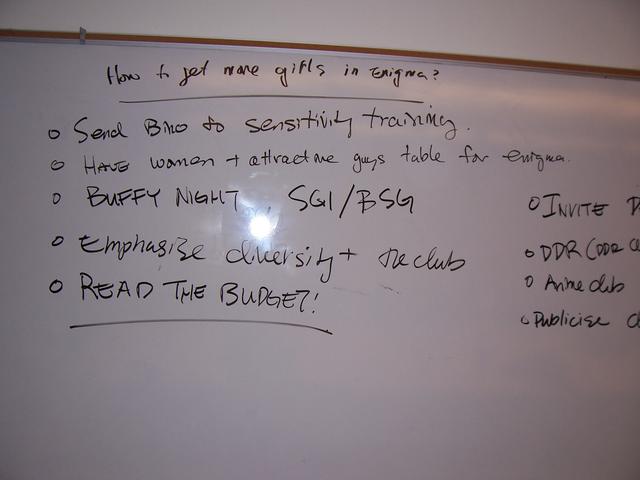 How to get more girls in Enigma?
o Send Bino to sensitivity training.
o HAVE women + attractive guys table for enigma.
o BUFFY NIGHT, SG1/BSG
o Emphasize diversity + the club
o READ THE BUDGET!
o INVITE
o DDR (DDR
o Anime club
o Publicise